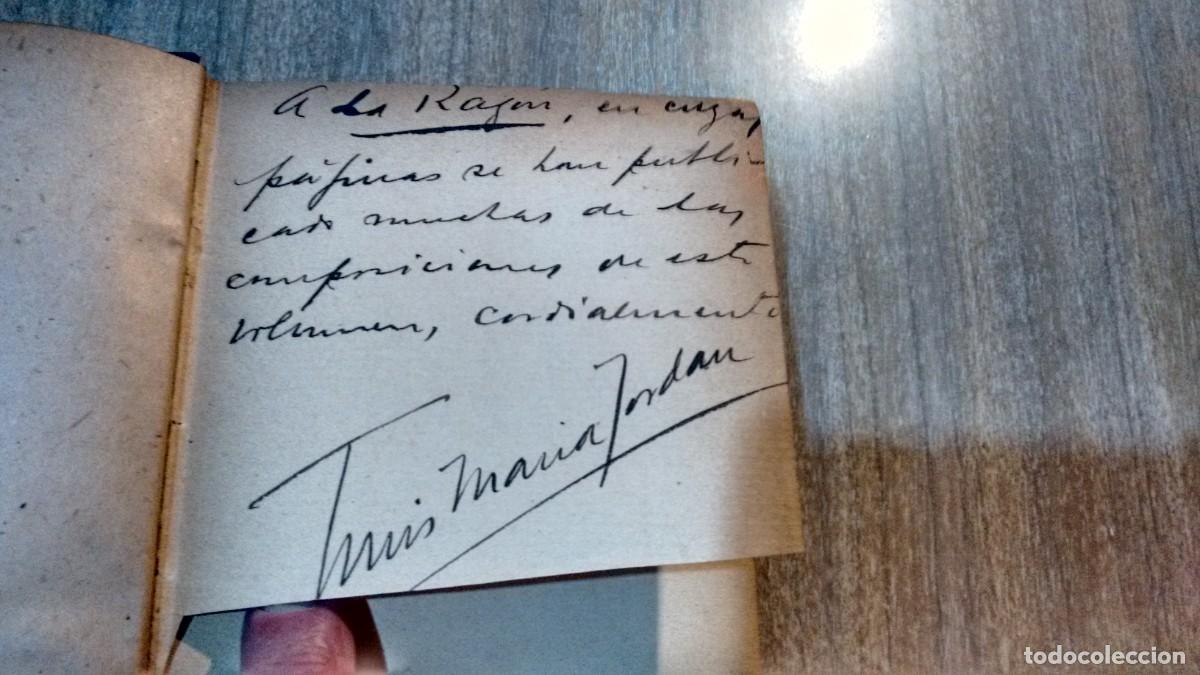 A La Razón, en cuyas
páginas se han publi-
cado muchas de las
composiciones de este
volumen, cordialmente
Luis Maria Jordan
todocoleccion